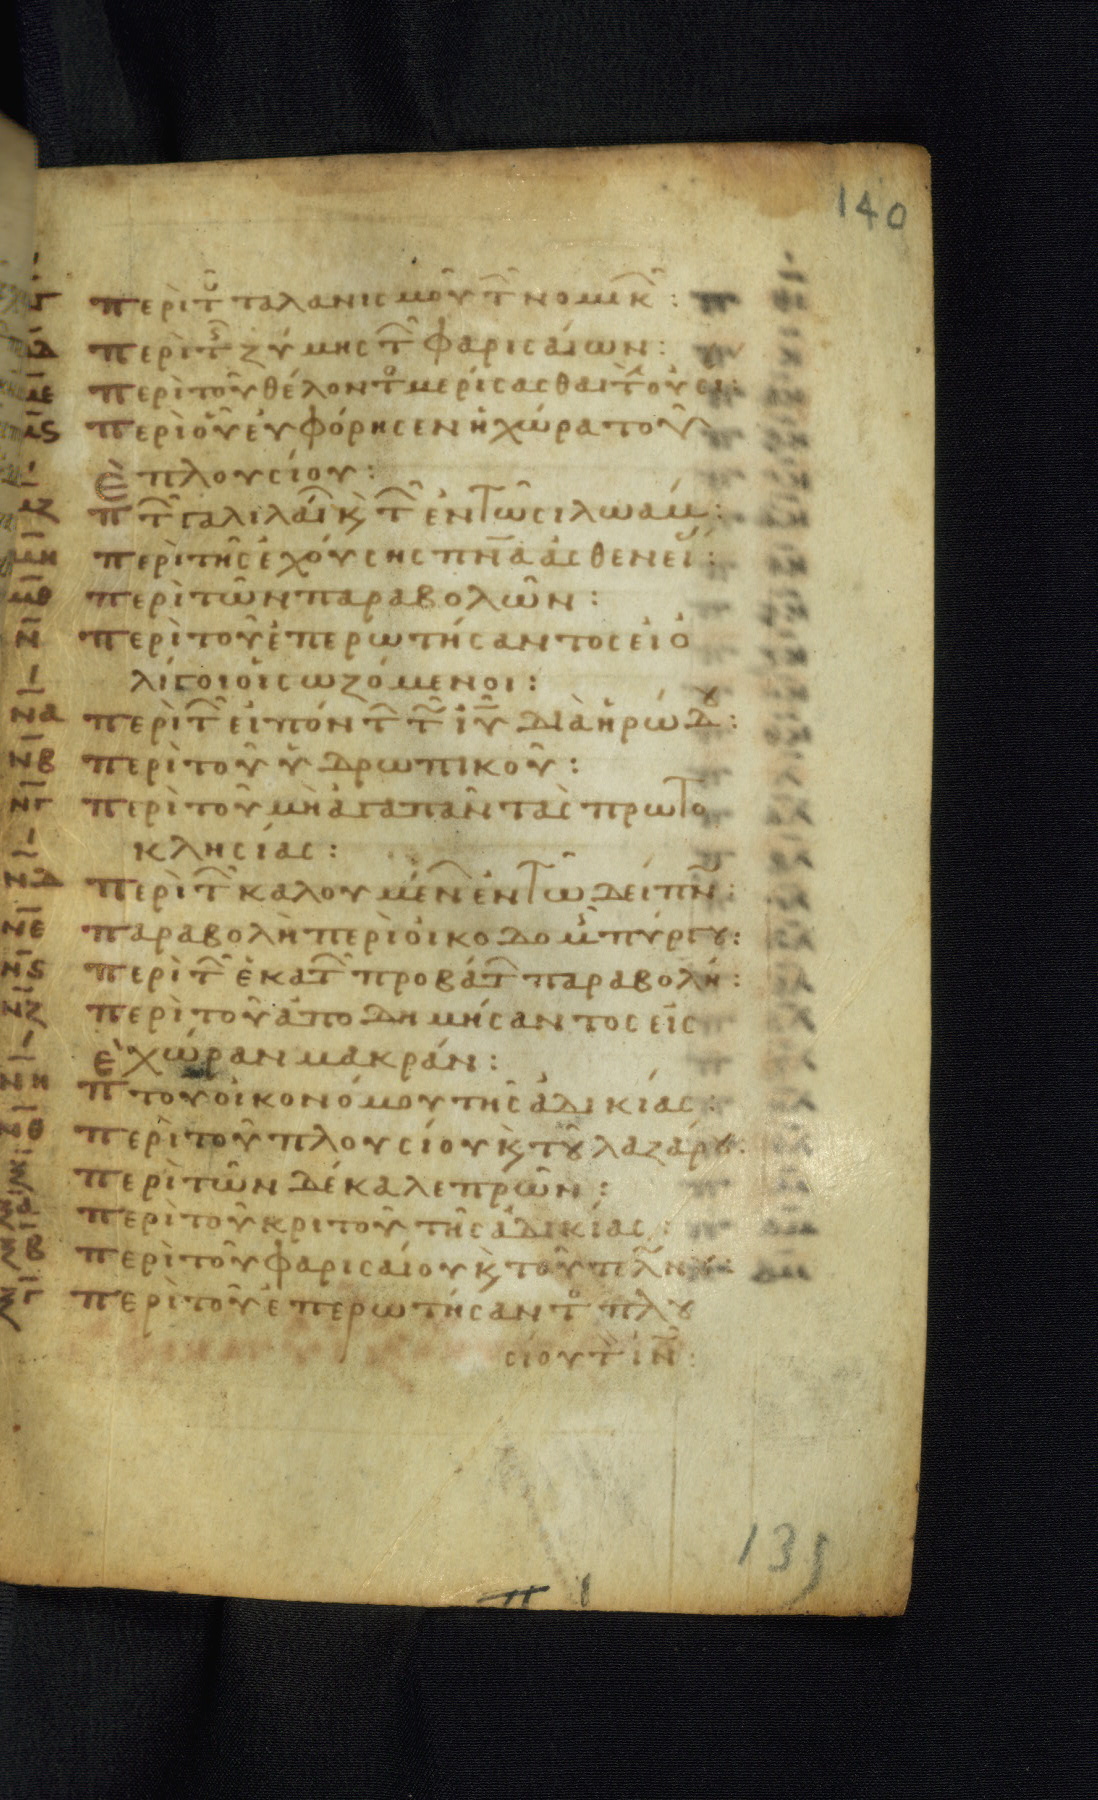 140
μγ περὶ τ ταλανισμοῦ τ νομικ :
μδ περὶ τ ζύμης τ φαρισαίων :
με περὶ τοῦ θέλοντ μερίσασθαι τ οὐσί :
μς περὶ οὗ εὐφόρησεν ἡ χώρα τοῦ
πλουσίου :
μζ περὶ τ γαλιλαί κ τ ἐν τῶ σιλωάμ :
μη περὶ τῆς ἐχούσης πνα ἀσθενεί :
μθ περὶ τῶν παραβολῶν :
ν περὶ τοῦ ἐπερωτήσαντος εἰ ὀ
λίγοι οἱ σωζόμενοι :
να περὶ τ εἰπόντ τ ιυ διὰ ἡρώδ :
νβ περὶ τοῦ ὑδρωπικοῦ :
νγ περὶ τοῦ μὴ ἀγαπᾶν τὰς πρωτο
κλησίας :
νδ περὶ τ καλουμέν ἐν τῶ δείπν :
νε παραβολὴ περὶ οἰκοδομ πύργου :
νς περὶ τ ἑκατ προβάτ παραβολή :
νζ περὶ τοῦ ἀποδημήσαντος εἰς
χώραν μακράν :
νη περὶ του οἰκονόμου τῆς ἀδικίας :
νθ περὶ τοῦ πλουσίου κ τοῦ λαζάρου :
ξ περὶ τῶν δέκα λεπρῶν :
ξα περὶ τοῦ κριτοῦ τῆς ἀδικίας :
ξβ περὶ τοῦ φαρισαίου κ τοῦ τελών :
ξγ περὶ τοῦ ἐπερωτήσαντ πλου
σίου τ ιν :
139